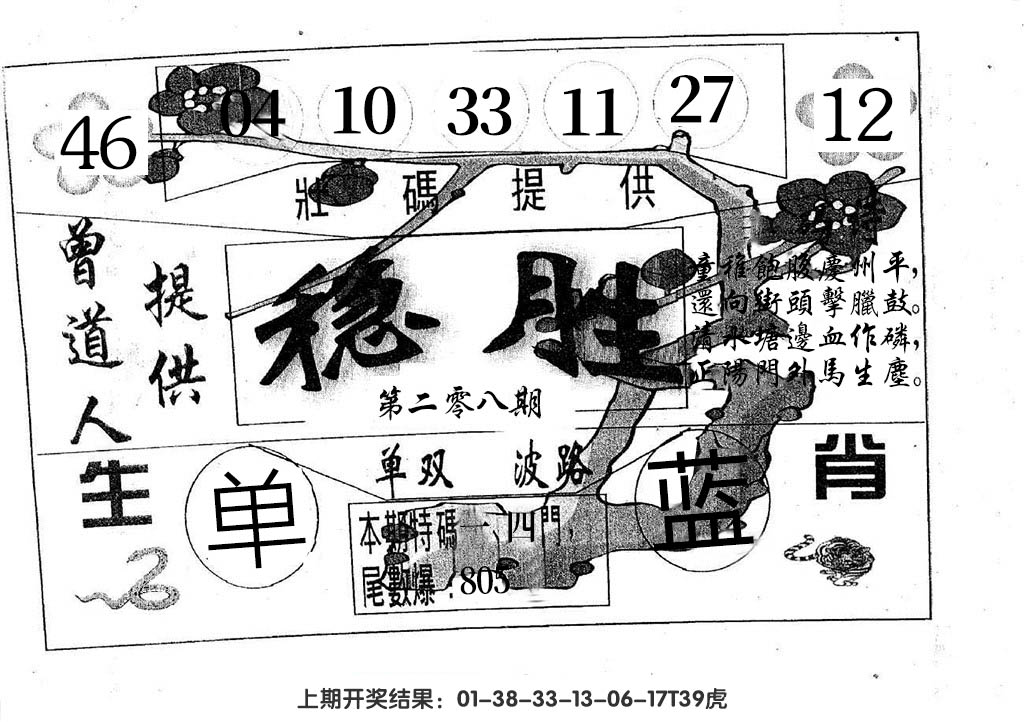 46 04 10 33 11 27 12
壯碼提供
曾道人
提供
稳胜
第二零八期
童稚飽腹慶州平,
還向街頭擊臘鼓。
清水塘邊血作磷,
正陽門外馬生塵。
单双 波路
生
肖
单
蓝
本期特碼一、四門,
尾數爆:805
上期开奖结果:01-38-33-13-06-17T39虎